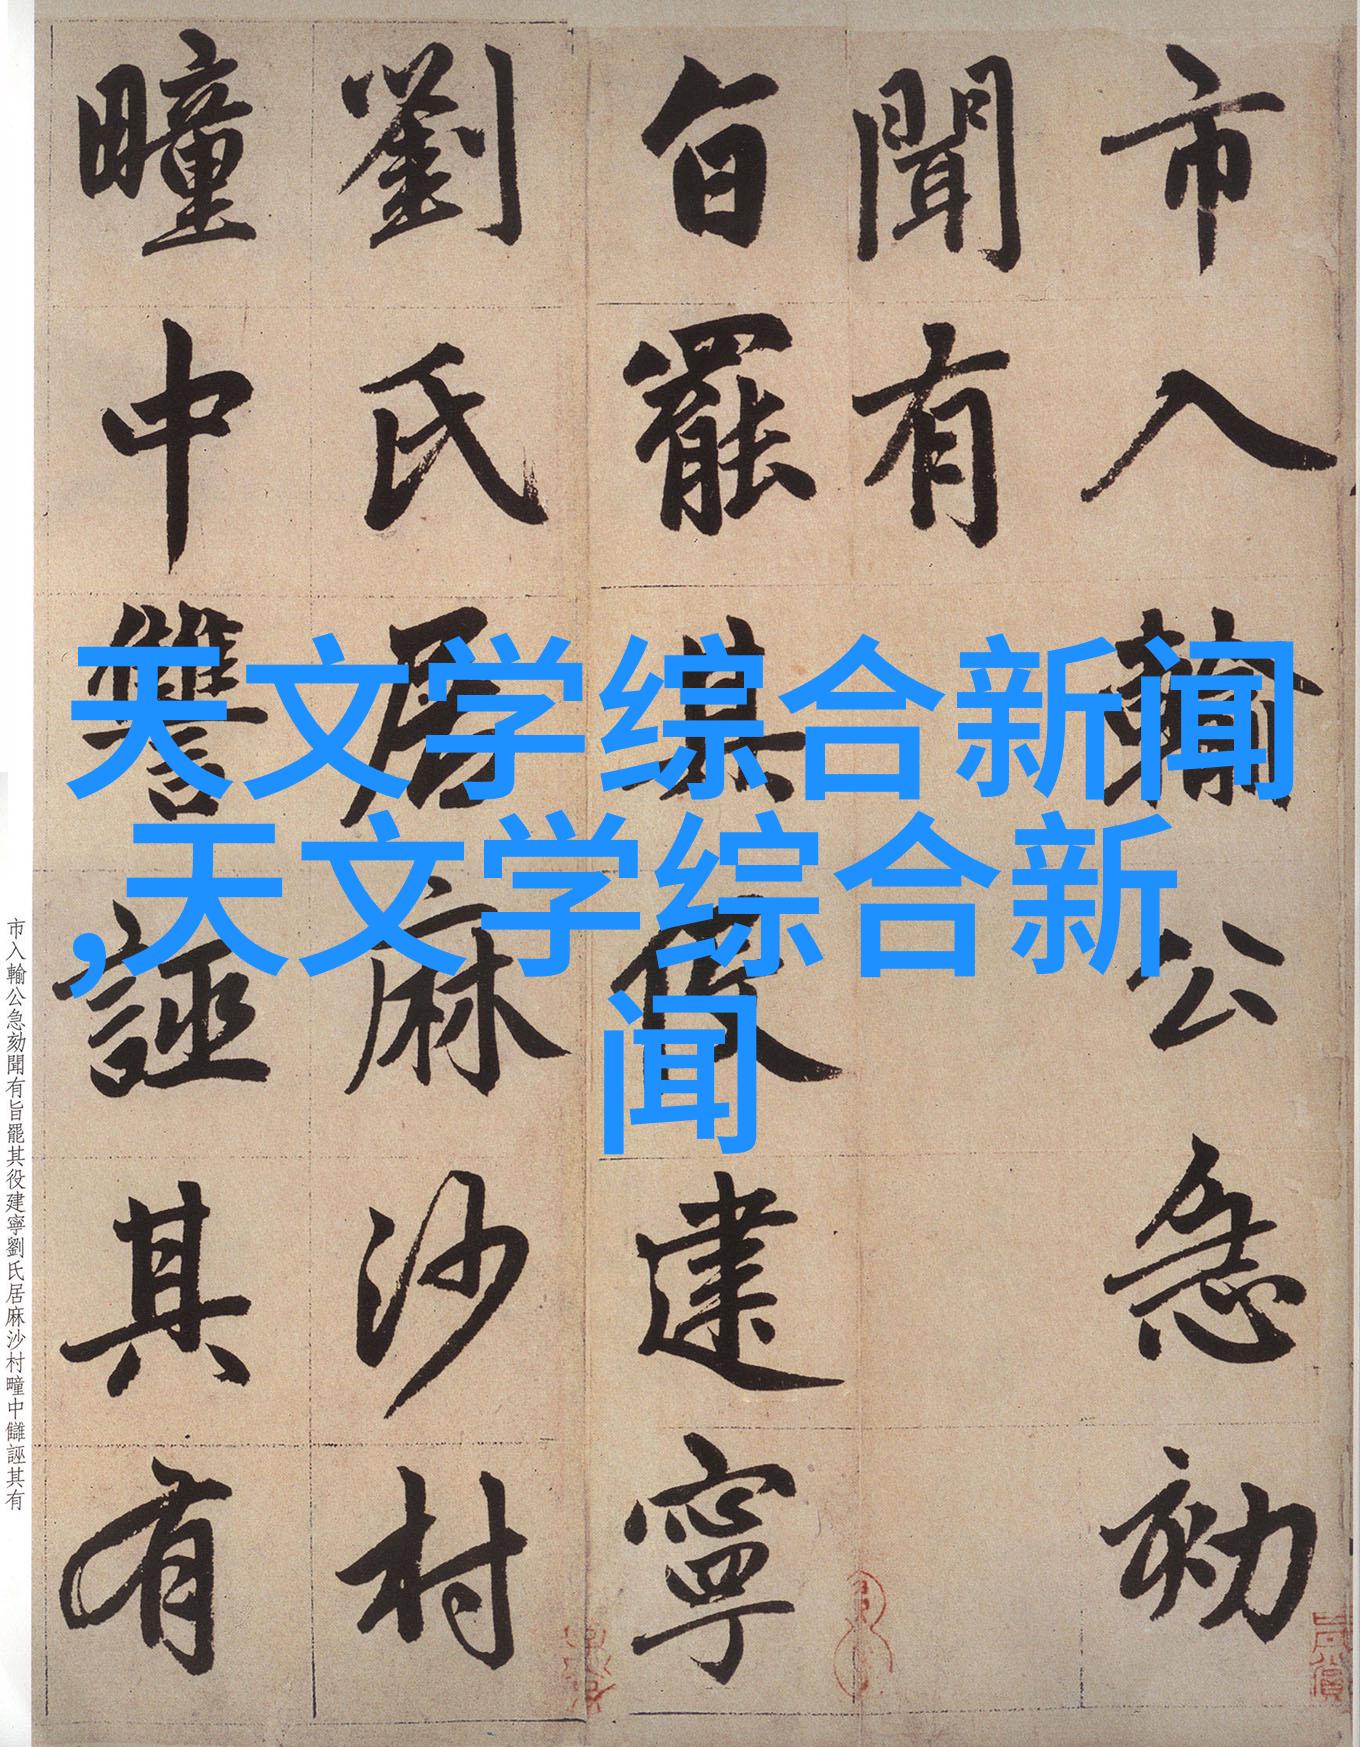 市入輸公急劾
聞有
旨罷其役建寧
劉氏居麻沙村
疃中讎誣其有
天文学综合新闻
,天文学综合新
闻
市入輸公急劾聞有旨罷其役建寧劉氏居麻沙村疃中讎誣其有